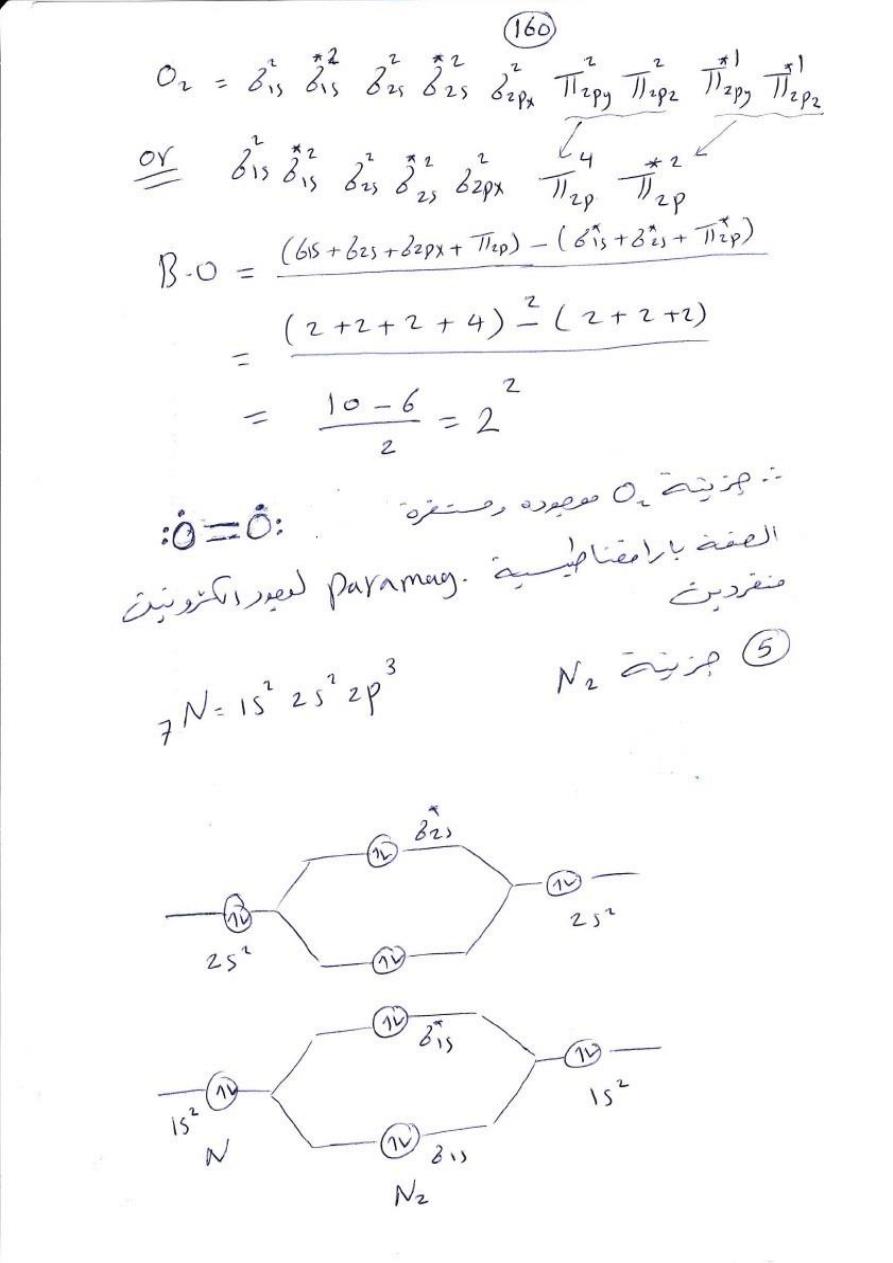 160
O₂ = б²1s б*²1s б²2s б*²2s б²2px π²2py π²2pz π*¹2py π*¹2pz
or б²1s б*²1s б²2s б*²2s б²2px π⁴2p π*²2p
B.O = (б1s + б2s + б2px + π2p) − (б*1s + б*2s + π*2p)
2
= (2+2+2+4) − (2+2+2)
2
= 10 − 6 / 2 = 2
∴ جزيئة O₂ موجوده ومستقرة
:Ö=Ö:
الصفة بارامغناطيسية paramag. لوجود الكترونين
منفردين
5 جزيئة N₂
₇N = 1s² 2s² 2p³
б*2s
2s² 2s²
б*1s
1s² 1s²
N б1s
N₂